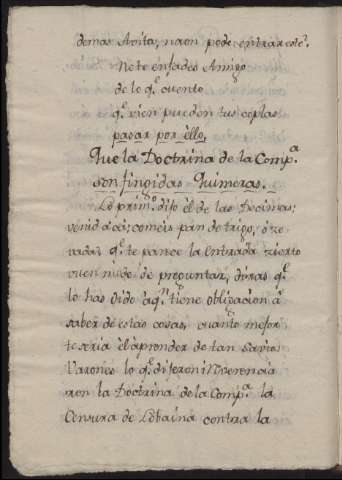 demas
No te enfades Amigo
de lo q.e cuento
q.e vien pueden tus coplas
pasar por ello,
Que la Doctrina de la Comp.a
son fingidas Quimeras.
Lo prim.o dijo èl de las Decimas;
venid acà; comeis pan de trigo, ò ze
vada; q.e te parece la entrada? zierto
vuen modo de preguntar, diras q.e
lo has oido à q.n tiene obligacion à
saber de estas cosas, quanto mejor
te seria èl aprender de tan Savios
Varones lo q.e dijeron
ron la Doctrina de la Comp.a la
Censura de Lobaina contra la